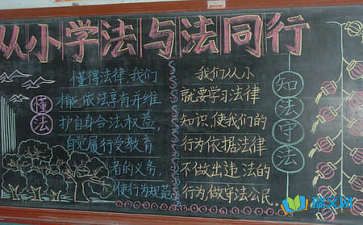 从小学法与法同行
懂法
懂得法律,我们
才能依法享有并维
护自身合法权益,
自觉履行受教育
者的义务,
使行为规范
我们从小
就要学习法律
知识,使我们的
行为依据法律
不做出违法的
行为,做守法公民
知法守法